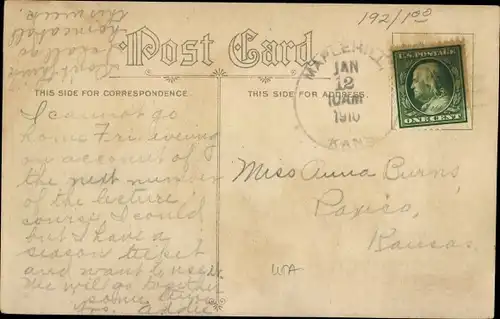 192/1.00
Post Card
THIS SIDE FOR CORRESPONDENCE.
THIS SIDE FOR ADDRESS.
MAPLEHILL
JAN
12
10AM
1910
KANS
U.S. POSTAGE
ONE CENT
I cannot go
home Fri. evening
on account of
the next number
of the lecture
course. I could
but I have a
season ticket
and want to use it.
We will go together
some time
Addie
this week.
Miss Anna Burns,
Paxico,
Kansas.